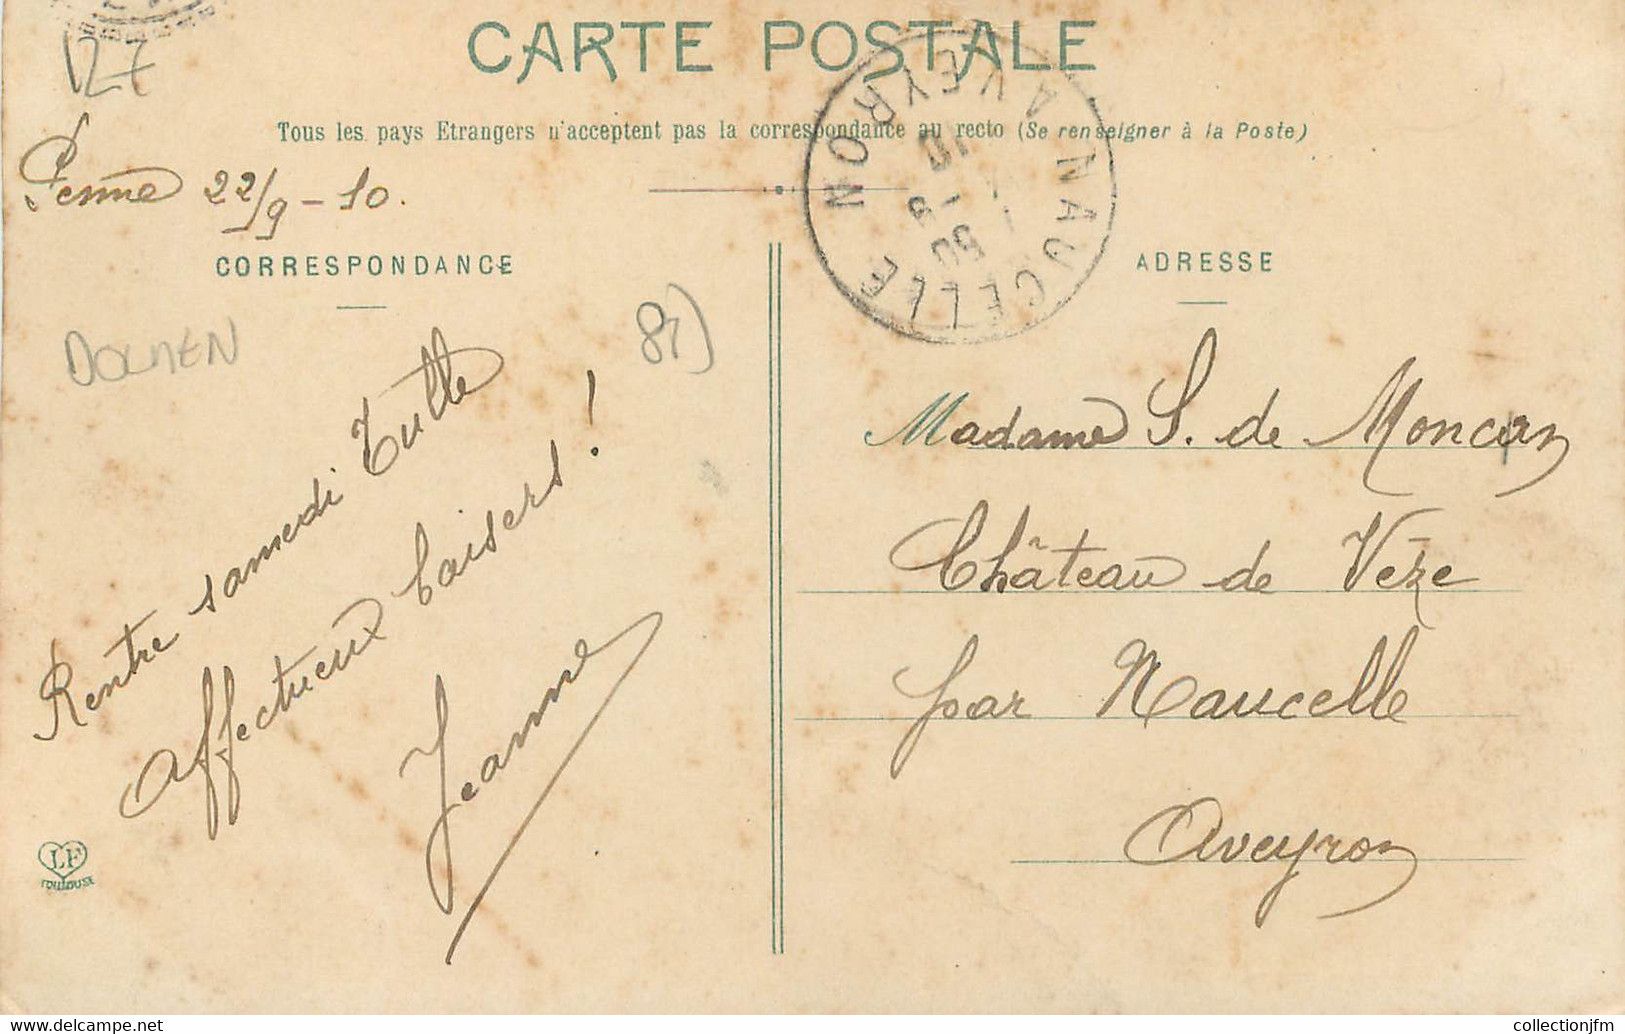 CARTE POSTALE
127
Tous les pays Etrangers n'acceptent pas la correspondance au recto (Se renseigner à la Poste)
Penne 22/9-10.
NAUCELLE
AVEYRON
CORRESPONDANCE
ADRESSE
DOLMEN
81)
Rentre samedi Tulle
Affectueux baisers!
Jeanne
Madame S. de Moncan
Château de Vèze
par Naucelle
Aveyron
LF
TOULOUSE
collectionjfm